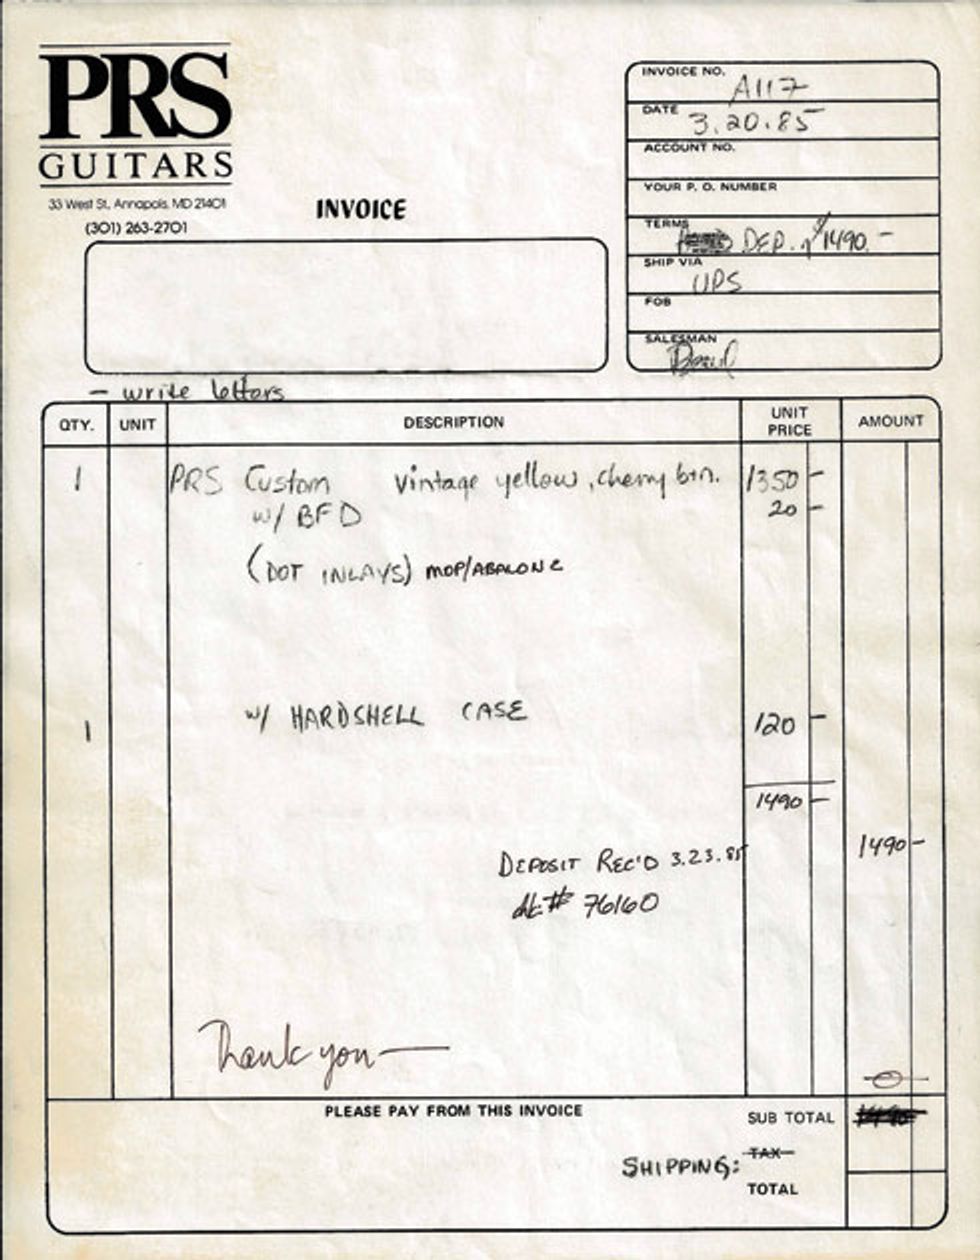 PRS
GUITARS
33 West St., Annapolis, MD 21401
(301) 263-2701
INVOICE
INVOICE NO. A117
DATE 3.20.85
ACCOUNT NO.
YOUR P. O. NUMBER
TERMS DEP. $1490.-
SHIP VIA UPS
FOB
SALESMAN
- write letters
QTY. UNIT DESCRIPTION UNIT PRICE AMOUNT
1 PRS Custom vintage yellow, cherry btn. 1350 -
w/ BFD 20 -
(DOT INLAYS) MOP/ABALONE
1 w/ HARDSHELL CASE 120 -
1490 -
1490 -
DEPOSIT REC'D 3.23.85
# 76160
Thank you —
0
PLEASE PAY FROM THIS INVOICE
SUB TOTAL
SHIPPING: TAX
TOTAL